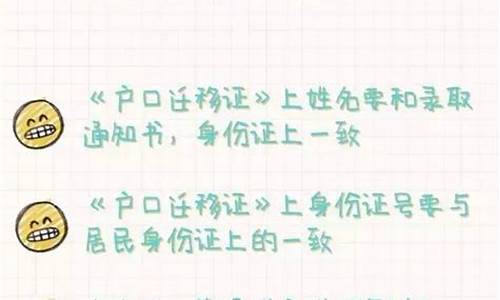 《户口迁移证》上姓名要和录取
通知书，身份证上一致
《户口迁移证》上身份证号要与
居民身份证上的一致